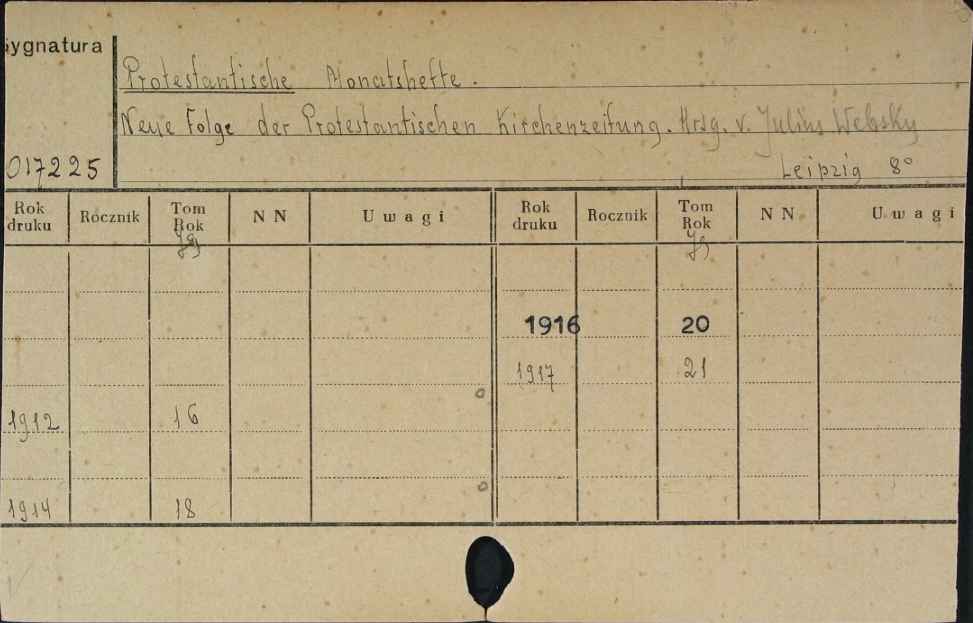 Sygnatura
Protestantische Monatshefte.
Neue Folge der Protestantischen Kirchenzeitung. Hrsg. v. Julius Websky
017225 Leipzig 8°
Rok druku Rocznik Tom Rok NN Uwagi Rok druku Rocznik Tom Rok NN Uwagi
Jg Jg
1916 20
1917 21
1912 16
1914 18